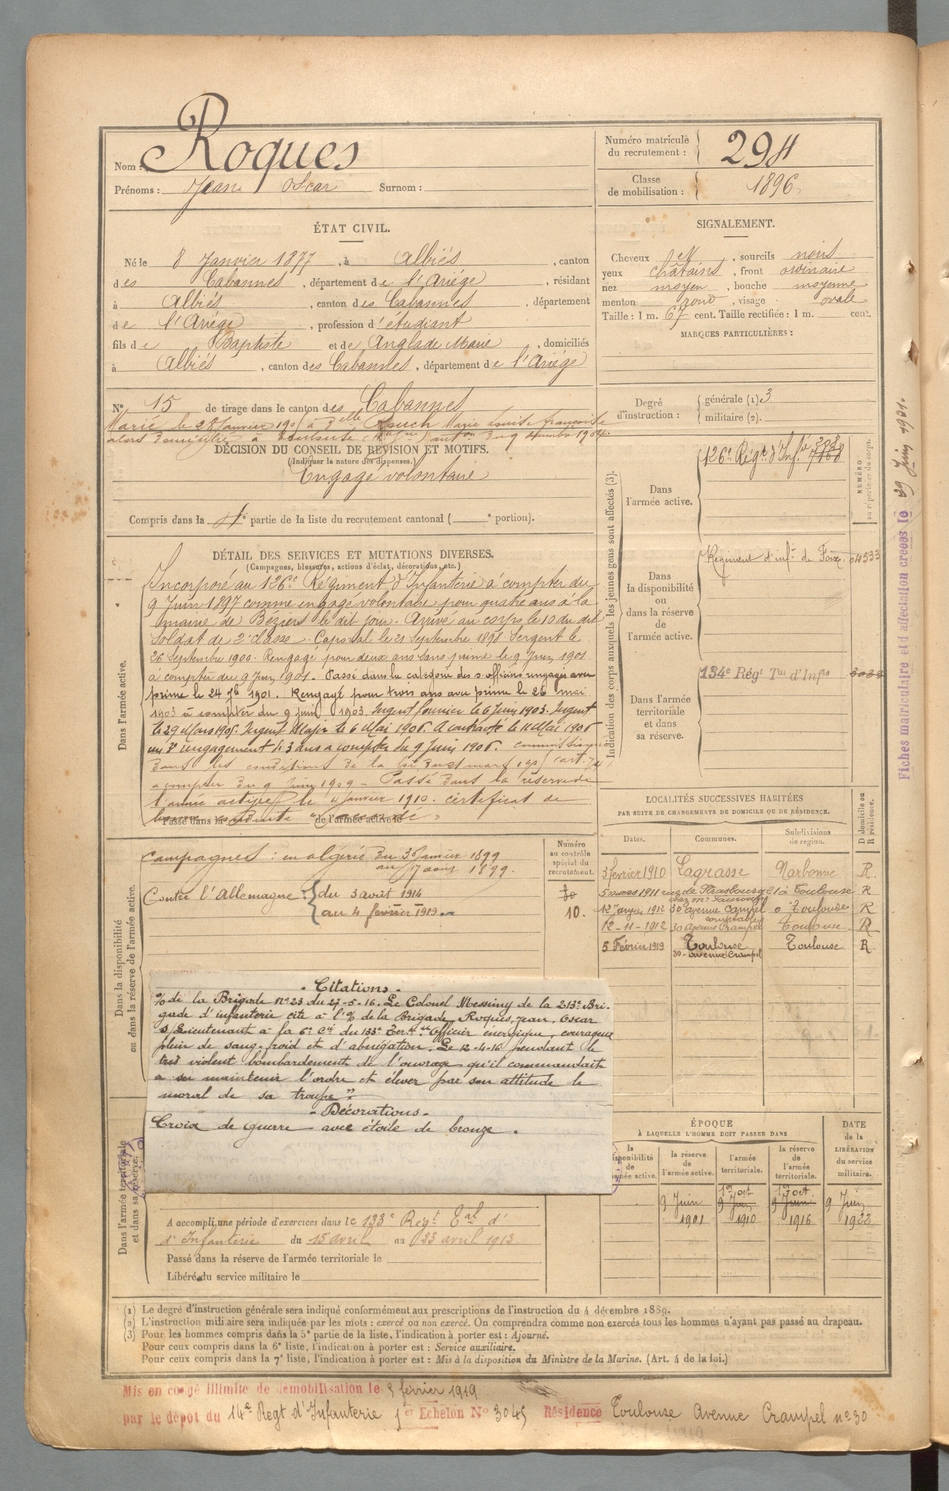 Nom : Roques
Prénoms : Jean Oscar Surnom :
Numéro matricule
du recrutement : 294
Classe
de mobilisation : 1896
ÉTAT CIVIL.
Né le 8 Janvier 1877, à Albiés, canton
des Cabannes, département de l'Ariége, résidant
à Albiés, canton des Cabannes, département
de l'Ariége, profession d'étudiant
fils de Baptiste et de Anglade Marie, domiciliés
à Albiés, canton des Cabannes, département de l'Ariége
SIGNALEMENT.
Cheveux, sourcils noirs
yeux châtains, front ordinaire
nez moyen, bouche moyenne
menton rond, visage ovale
Taille : 1 m. 67 cent. Taille rectifiée : 1 m. cent.
MARQUES PARTICULIÈRES :
N° 15 de tirage dans le canton des Cabannes
Marié le 28 Janvier à Delle Rouch Marie Louise Françoise
alors domiciliée à Toulouse
DÉCISION DU CONSEIL DE RÉVISION ET MOTIFS.
(Indiquer la nature des dispenses.)
Engagé volontaire
Compris dans la 4e partie de la liste du recrutement cantonal (e portion).
Degré
d'instruction :
générale (1) 3
militaire (2).
Indication des corps auxquels les jeunes gens sont affectés (3).
Dans
l'armée active.
126e Régt d'Infie
NUMÉRO
au répertoire du corps.
Dans
la disponibilité
ou
dans la réserve
de
l'armée active.
Régiment d'infie de Foix 04533
Dans l'armée
territoriale
et dans
sa réserve.
134e Régt Tal d'Infie
DÉTAIL DES SERVICES ET MUTATIONS DIVERSES.
(Campagnes, blessures, actions d'éclat, décorations, etc.)
Dans l'armée active.
Incorporé au 126e Régiment d'Infanterie à compter du
9 Juin 1897 comme engagé volontaire pour quatre ans à la
mairie de Béziers le dit jour. Arrivé au corps le 10 du dit
Soldat de 2e classe. Caporal le 21 Septembre 1898. Sergent le
26 Septembre 1900. Rengagé pour deux ans sans prime le 9 Juin 1901
à compter du 9 Juin 1901. Passé dans la catégorie des s officiers rengagés avec
prime le 24 7bre 1901. Rengagé pour trois ans avec prime le 26 mai
1903 à compter du 9 juin 1903. Sergent fourrier le 6 Juin 1903. Sergent
le 29 Mars 1905. Sergent Major le 6 Mai 1906. A contracté le 11 Mai 1906
un 3e rengagement de 3 ans à compter du 9 Juin 1906. commissionné
dans les conditions de la loi du 21 mars 1905
à compter du 9 Juin 1909 - Passé dans la réserve de
l'armée active le janvier 1910. certificat de
bonne conduite accordé.
Passé dans la de l'armée active le
Dans la disponibilité
ou dans la réserve de l'armée active.
Campagnes : en algérie du 3 Janvier 1899
au 17 aout 1899.
Contre l'Allemagne : du 3 août 1914
au 4 février 1919.
Numéro
au contrôle
spécial du
recrutement.
10.
LOCALITÉS SUCCESSIVES HABITÉES
PAR SUITE DE CHANGEMENTS DE DOMICILE OU DE RÉSIDENCE.
Dates. Communes. Subdivisions
de région.
D domicile ou
R résidence.
3 février 1910 Lagrasse Narbonne R.
5 mars 1911 rue de Strasbourg Toulouse R
30 avenue Crampel Toulouse R
12-11-1912 30 avenue Crampel Toulouse R
5 Février 1919 Toulouse Toulouse R
30 avenue Crampel
- Citations -
% de la Brigade N° 23 du 27-5-16. Le Colonel Messimy de la 213e Bri-
gade d'infanterie cite à l'% de la Brigade, Roques, Jean, Oscar
s/Lieutenant à la 6e Cie du 133e Territ. "Officier énergique, courageux
plein de sang-froid et d'abnégation. Le 12-4-16 pendant le
très violent bombardement de l'ouvrage qu'il commandait
a su maintenir l'ordre et élever par son attitude le
moral de sa troupe"
- Décorations -
Croix de guerre avec étoile de bronze.
ÉPOQUE
À LAQUELLE L'HOMME DOIT PASSER DANS
DATE
de la
LIBÉRATION
du service
militaire.
la
disponibilité
de
l'armée active.
la réserve
de
l'armée active.
l'armée
territoriale.
la réserve
de
l'armée
territoriale.
9 Juin
1901
1er oct
9 Juin
1910
1er oct
9 Juin
1916
9 Juin
1922
Dans l'armée territoriale
et dans sa réserve.
A accompli une période d'exercices dans le 133e Régt Tal d'
d'Infanterie du 15 avril au 23 avril 1913
Passé dans la réserve de l'armée territoriale le
Libéré du service militaire le
(1) Le degré d'instruction générale sera indiqué conformément aux prescriptions de l'instruction du 4 décembre 1889.
(2) L'instruction militaire sera indiquée par les mots : exercé ou non exercé. On comprendra comme non exercés tous les hommes n'ayant pas passé au drapeau.
(3) Pour les hommes compris dans la 5e partie de la liste, l'indication à porter est : Ajourné.
Pour ceux compris dans la 6e liste, l'indication à porter est : Service auxiliaire.
Pour ceux compris dans la 7e liste, l'indication à porter est : Mis à la disposition du Ministre de la Marine. (Art. 4 de la loi.)
Mis en congé illimité de démobilisation le 3 février 1919
par le dépôt du 14e Régt d'Infanterie 1er Echelon N° 3045 Résidence Toulouse Avenue Crampel n° 30
Fiches matriculaire et d'affectation créées le 29 Juin 1901.